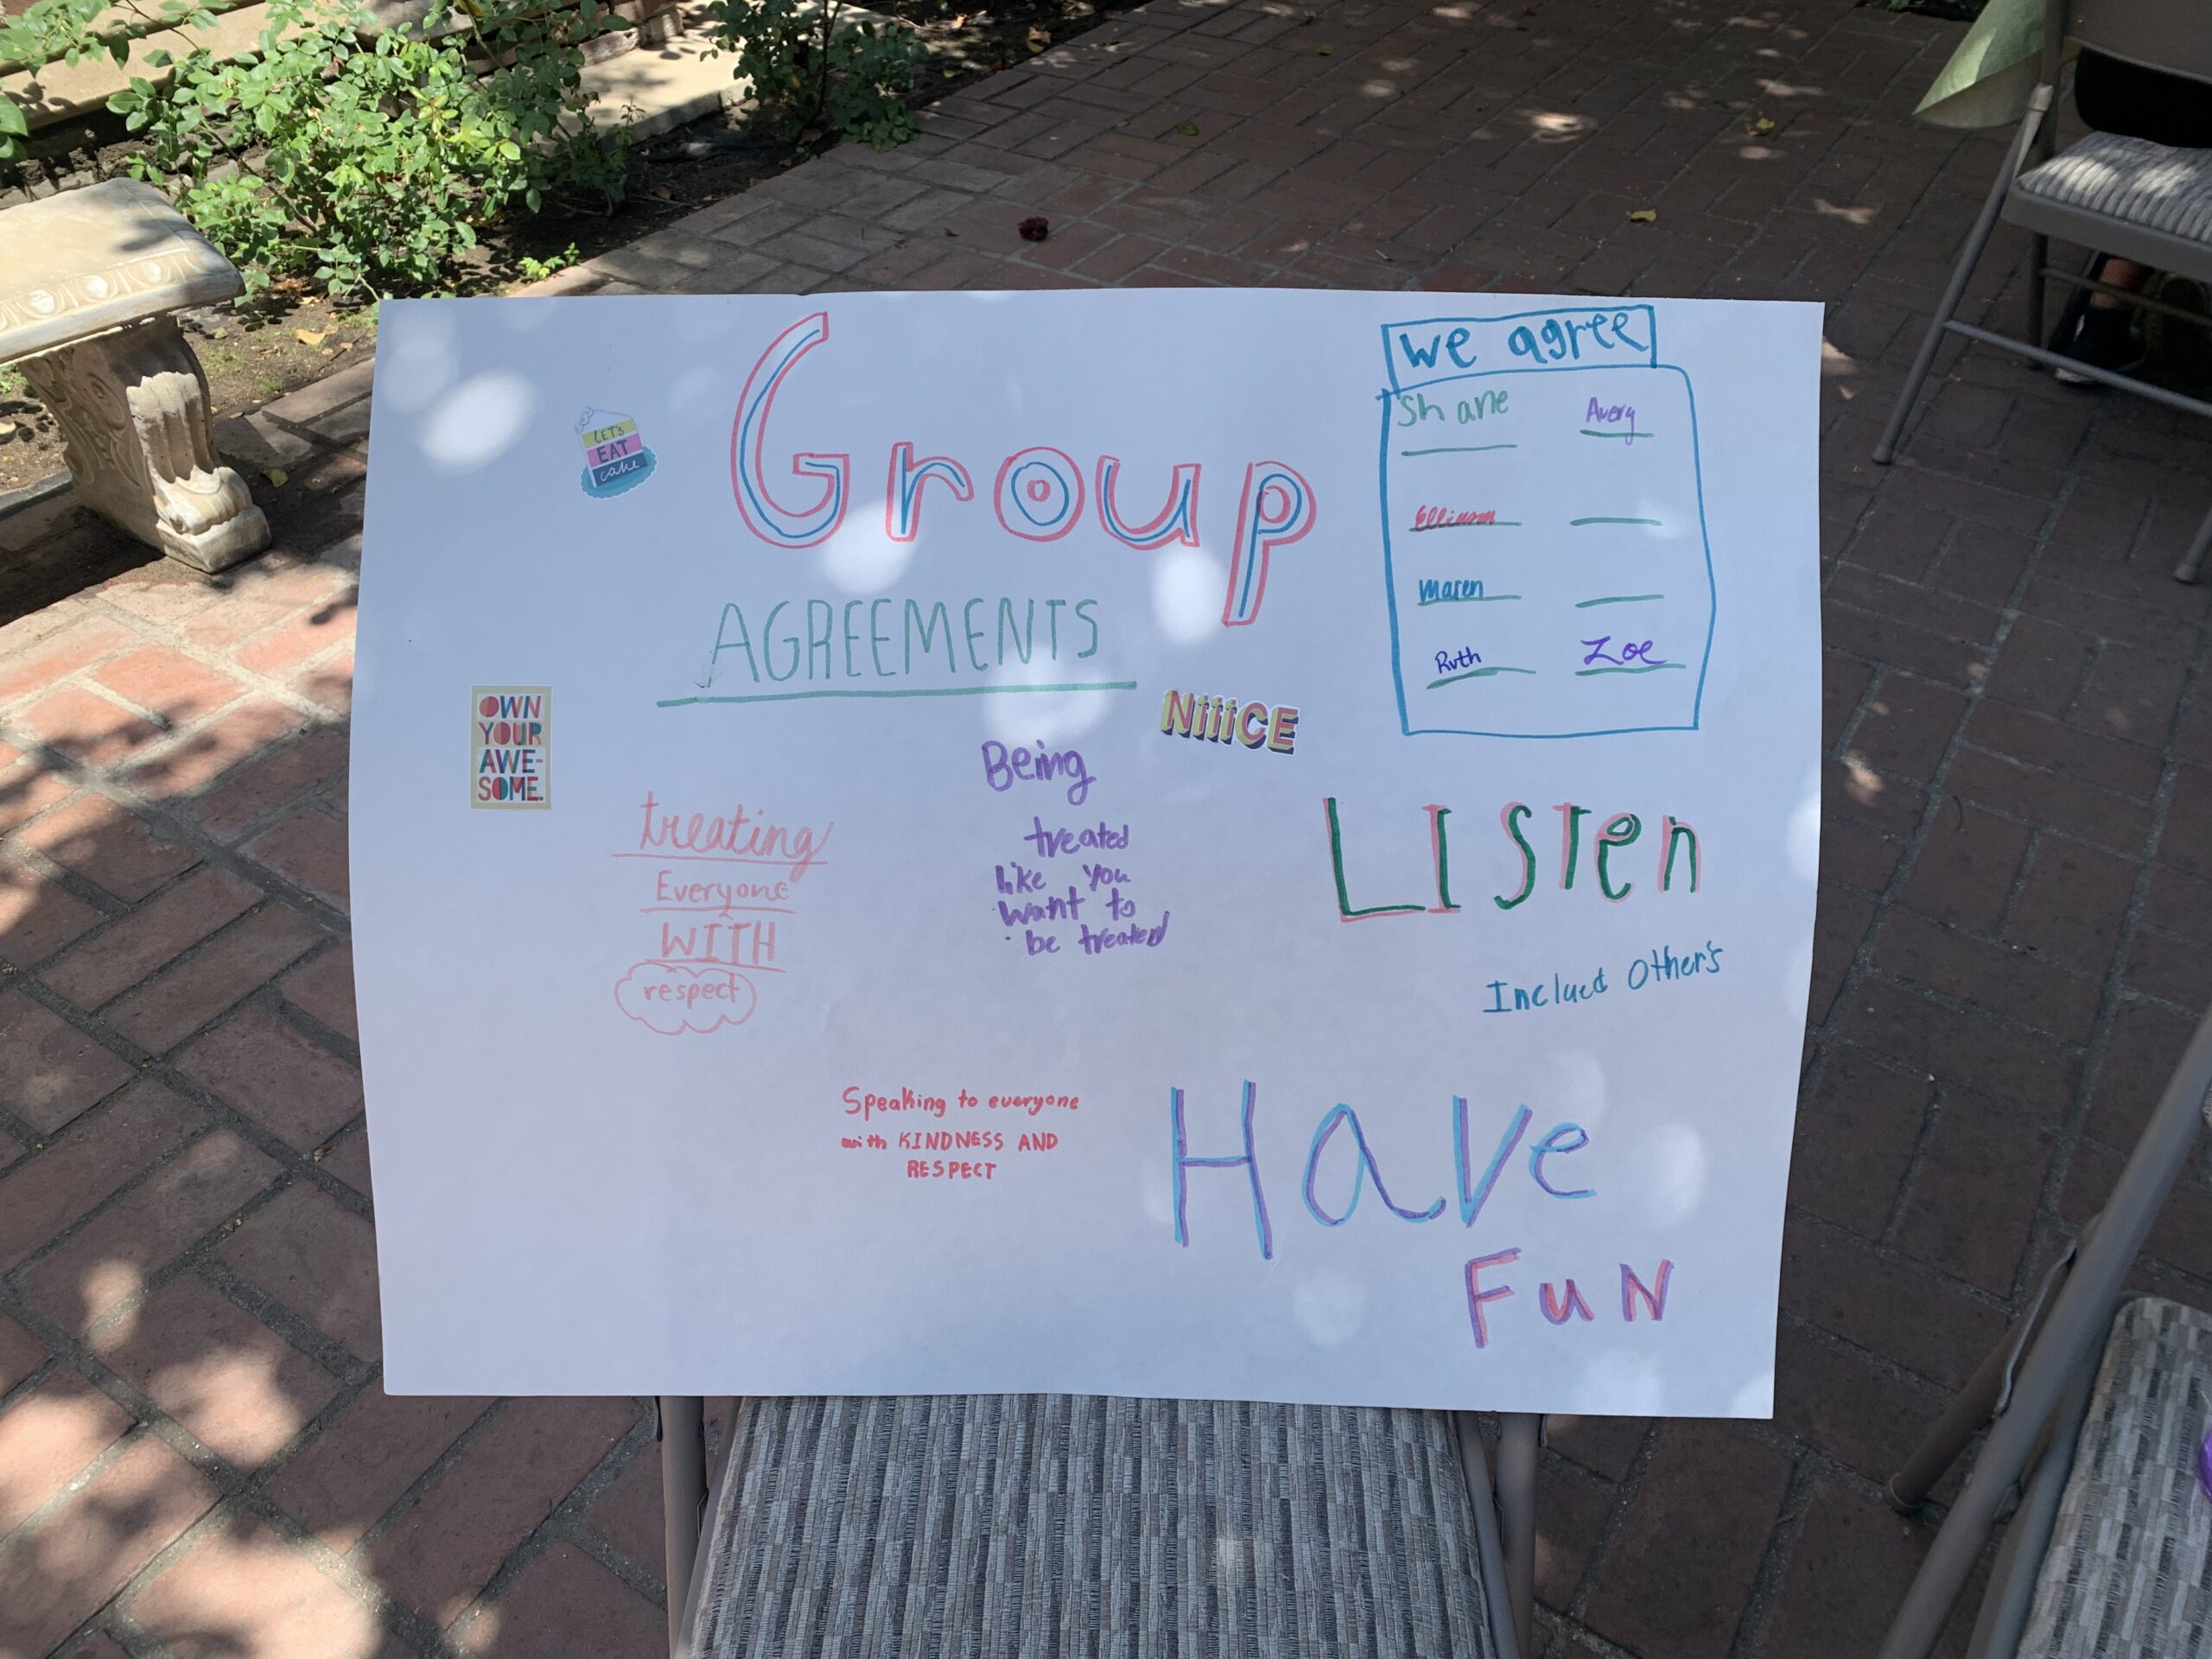 LET'S
EAT
cake
Group
AGREEMENTS
we agree
Shane
Avery
Maren
Ruth
Zoe
OWN
YOUR
AWE-
SOME.
NiiiCE
treating
Everyone
WITH
respect
Being
treated
like you
want to
be treated
LISTen
Includ Other's
Speaking to everyone
with KINDNESS AND
RESPECT
Have
FuN